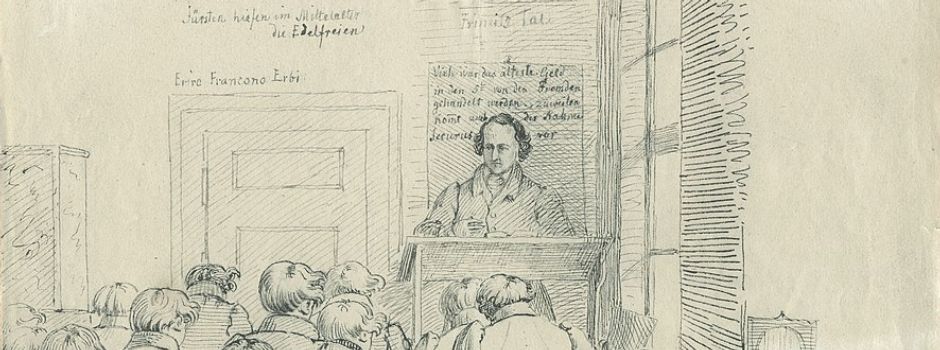 Fürsten hießen im Mittelalter
die Edelfreien
Erire Francono Erbi
Vieh war das älteste Geld
in den 5t von den Fremden
gehandelt werden, zuweilen
komt auch der Nahme
Securus vor